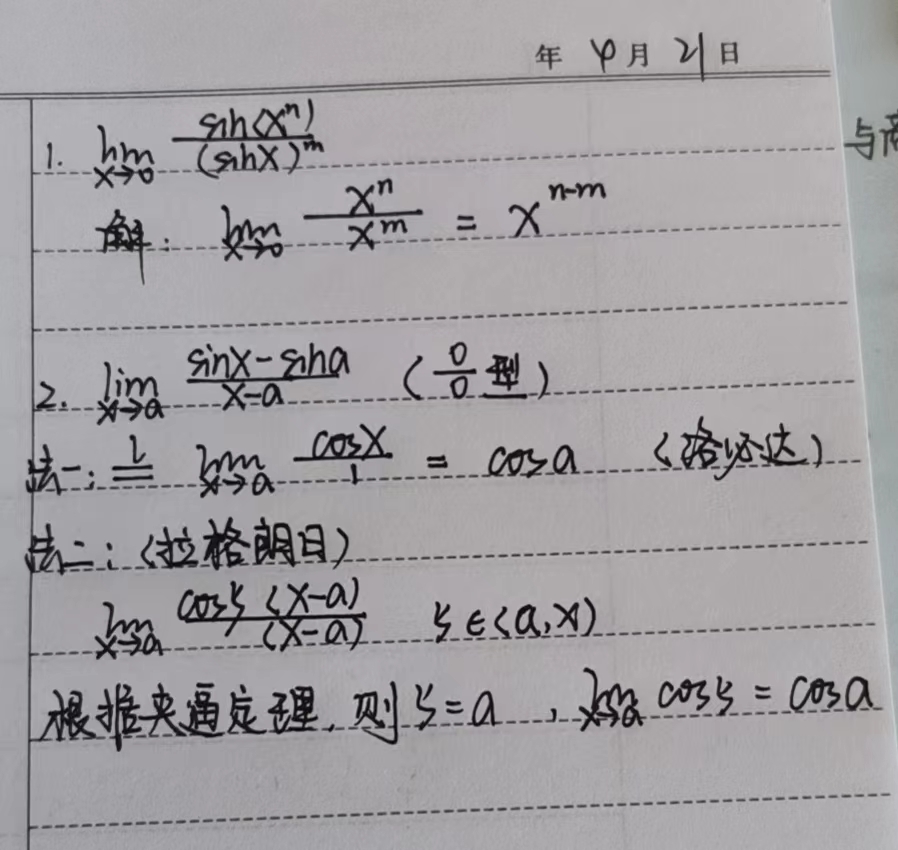 年 4月 21日
1. lim x→0 sin(x^n)/(sinx)^m
与
解: lim x→0 x^n/x^m = x^{n-m}
2. lim x→a (sinx-sina)/(x-a) (0/0 型)
法一: =^L lim x→a cosx/1 = cosa (洛必达)
法二: (拉格朗日)
lim x→a cosξ(x-a)/(x-a) ξ∈(a,x)
根据夹逼定理, 则ξ=a , lim x→a cosξ = cosa